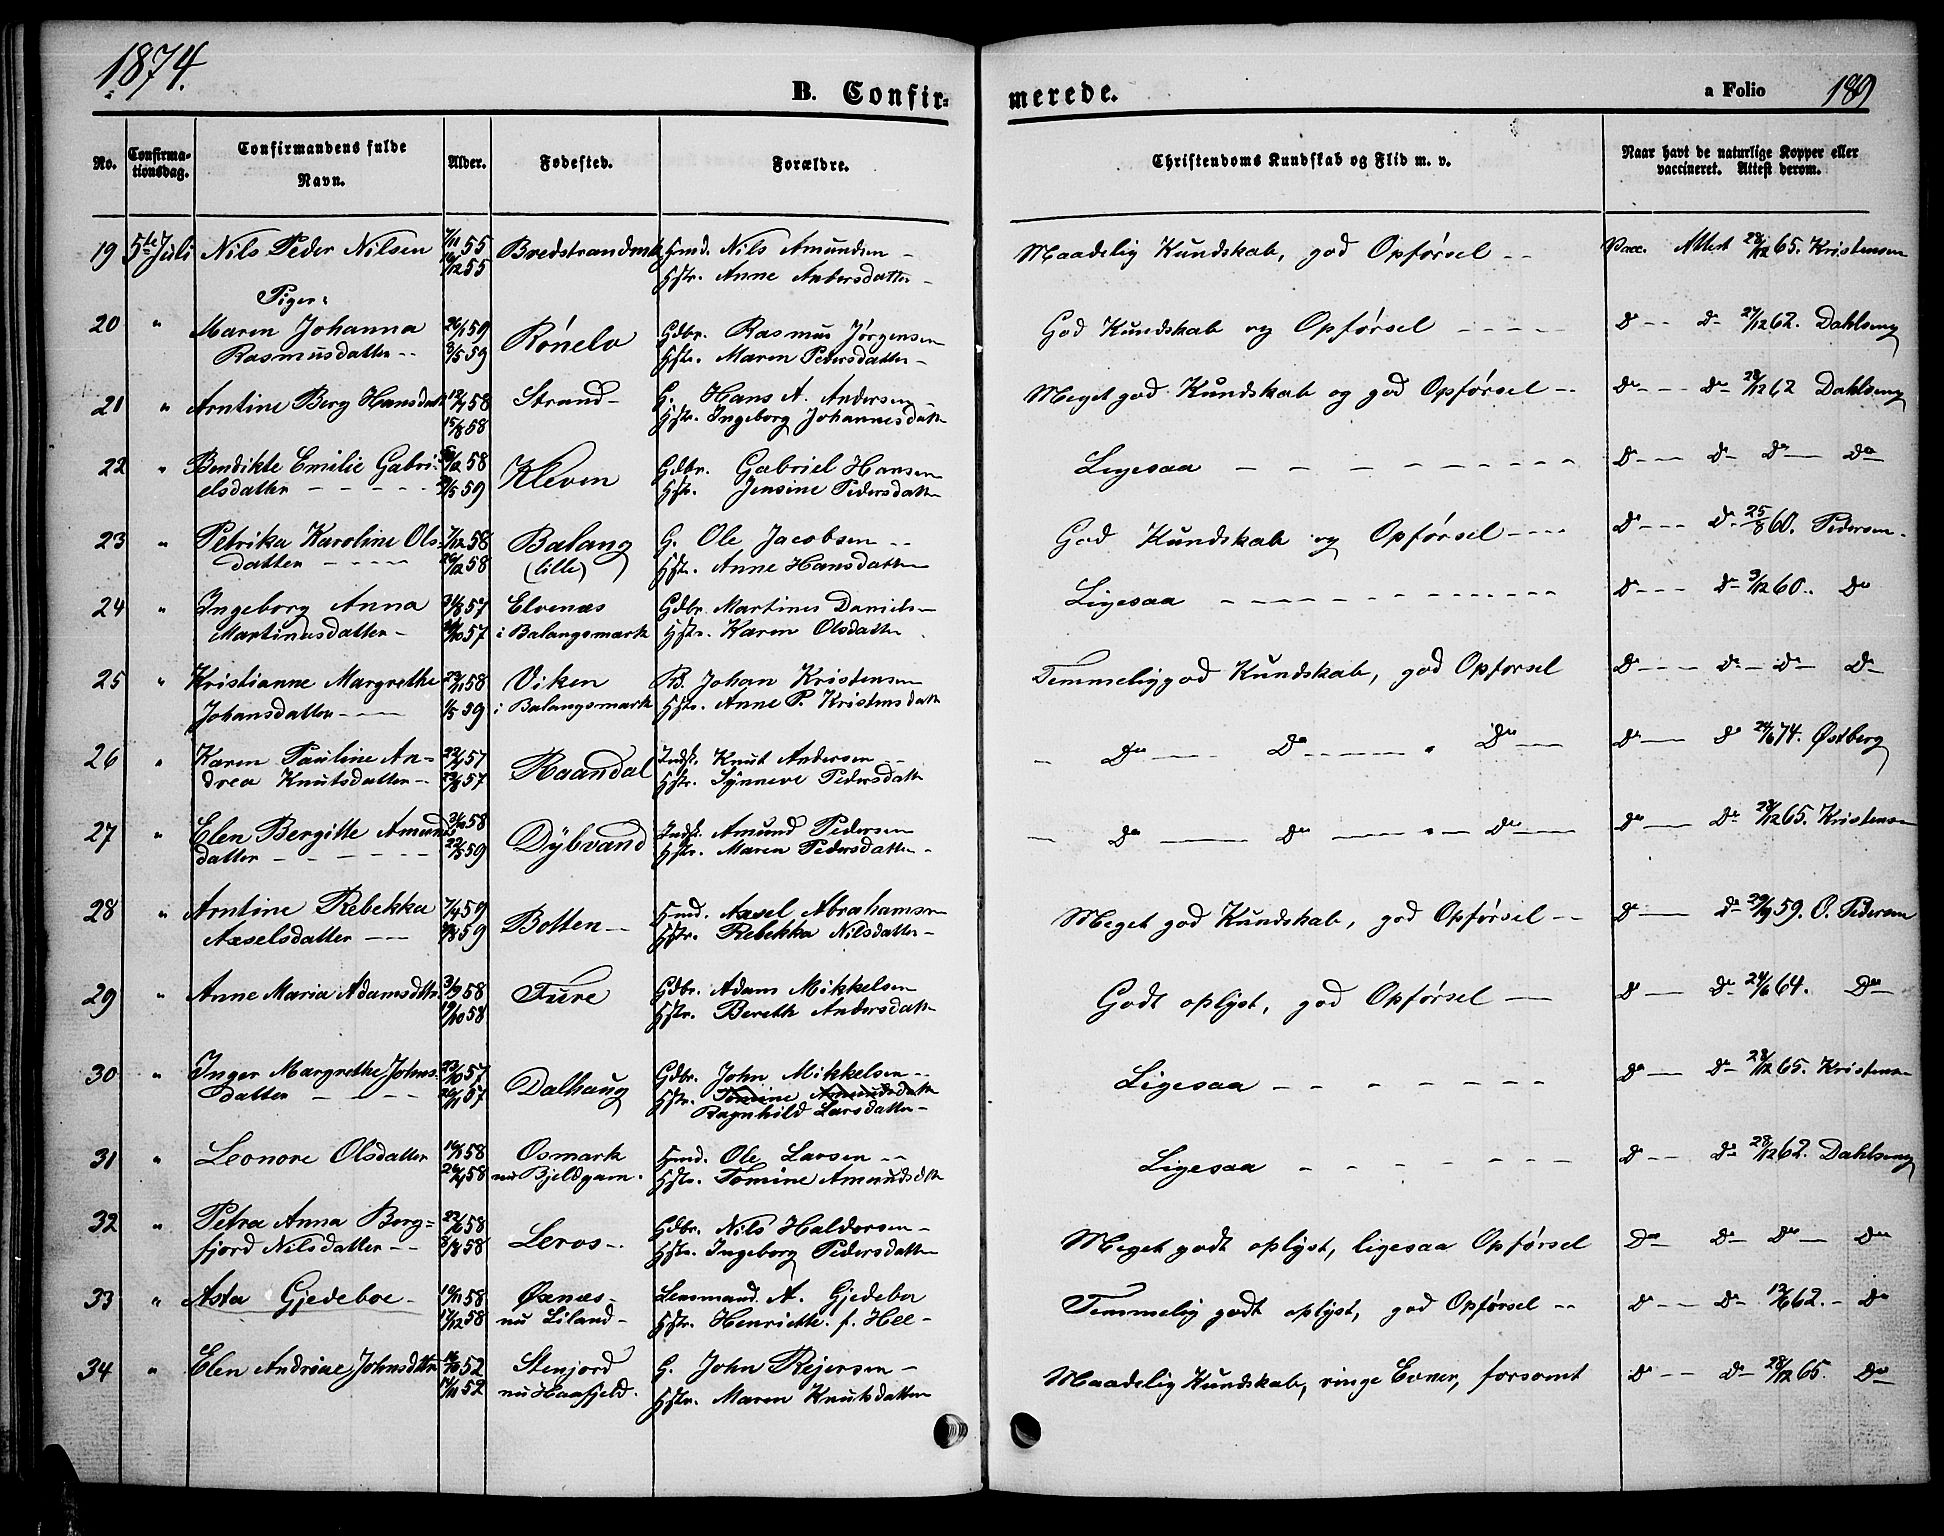 1874.
B. Confirmerede.
a Folio 189
No.
Confirmationsdag.
Confirmandens fulde Navn.
Alder.
Fødested.
Forældre.
Christendoms Kundskab og Flid m. v.
Naar havt de naturlige Kopper eller vaccineret. Attest derom.
19 5te Juli Nils Peder Nilsen 7/11 55 Bredstrandmk Hmd. Nils Amundsen Maadelig Kundskab, god Opførsel Vacc. Attest 28/12 65. Kristensen
16/12 55 Hstr. Anne Andersdatter
Piger:
20 " Maren Johanna 26/1 59 Rónelv Gdbr. Rasmus Jørgensen God Kundskab og Opførsel Do Do 27/12 62. Dahlseng
Rasmusdatter 8/5 59 Hstr. Maren Pedersdatter
21 " Arntine Berg Hansdatt 12/7 58 Strand G. Hans A. Andersen Meget god Kundskab og god Opførsel Do Do 28/12 62 Dahlseng
15/8 58 Hstr. Ingeborg Johannesdatt
22 " Bendikte Emilie Gabri- 58 Kleven Gdbr. Gabriel Hansen Ligesaa Do Do Do Do
elsdatter 59 Hstr. Jensine Pedersdatt
23 " Petrika Karoline Ols- 7/12 58 Balang G. Ole Jacobsen God Kundskab og Opførsel Do Do 25/8 60. Pedersen
datter 26/12 58 (lille) Hstr. Anne Hansdatter
24 " Ingeborg Anna 31/8 57 Elvenæs Gdbr. Martines Daniels Ligesaa Do Do 9/12 60. Do
Martinusdatter 57 i Balangsmark Hstr. Karen Olsdatter
25 " Kristianne Margrethe 23/11 58 Viken Bd. Johan Kristensen Temmelig god Kundskab, god Opførsel Do Do Do Do
Johansdatter 1/5 59 i Balangsmark Hstr. Anne P. Kristensdatt
26 " Karen Pauline An- 57 Raandal Indst. Knut Andersen Do Do " Do Do Do 24/6 74. Østberg
drea Knutsdatter 23/8 57 Hstr. Synneve Pedersdatt
27 " Elen Bergitte Amunds 58 Dýbvand Indst. Amund Pedersen Do Do " Do Do Do 28/12 65. Kristensen
datter 59 Hstr. Maren Pedersdatter
28 " Arntine Rebekka 7/4 59 Botten Hmd. Axsel Abrahamsen Meget god Kundskab, god Opførsel Do Do 29/9 59. O. Pedersen
Axselsdatter 59 Hstr. Rebekka Nilsdatter
29 " Anne Maria Adamsdttr 3/9 58 Fure Gdbr. Adam Mikkelsen Godt oplyst, god Opførsel Do Do 24/6 64. Do
58 Hstr. Bereth Andersdatt
30 " Inger Margrethe Johns- 23/10 57 Dalhaug Gdbr. John Mikkelsen Ligesaa Do Do 28/12 65. Kristensen
datter 57 Hstr. Tomine Amundsdatt
Ragnhild Larsdatter
31 " Leonore Olsdatter 58 Osmark Hmd. Ole Larsen Ligesaa Do Do 28/12 62. Dahlseng
58 nu Bjeldgam. Hstr. Tomine Amundsdtt
32 " Petra Anna Berg= 22/6 58 Leros Gdbr. Nils Haldorsen Meget godt oplyst, ligesaa Opførsel Do Do Do Do
fjord Nilsdatter 8/8 58 Hstr. Ingeborg Pedersdatter
33 " Asta Gjedeboe 19/11 58 Øxnæs Lensmand A. Gjedeboe Temmelig godt oplyst, god Opførsel Do Do 62. Do
17/12 58 nu Liland Hstr. Henriette f. Hee
34 " Elen Andreae Johnsdttr 52 Stenjord G. John Rejersen Maadelig Kundskab, ringe Evner, forsømt Do Do 28/12 65. Do
52 nu Haafjeld. Hstr. Maren Knutsdatter